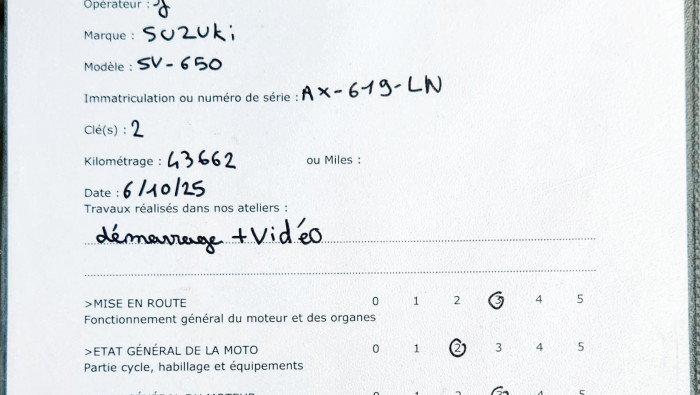 Opérateur : J
Marque : SUZUKi
Modèle : SV-650
Immatriculation ou numéro de série : AX-619-LN
Clé(s) : 2
Kilométrage : 43662 ou Miles :
Date : 6/10/25
Travaux réalisés dans nos ateliers :
démarrage + Vidéo
>MISE EN ROUTE 0 1 2 3 4 5
Fonctionnement général du moteur et des organes
>ETAT GÉNÉRAL DE LA MOTO 0 1 2 3 4 5
Partie cycle, habillage et équipements